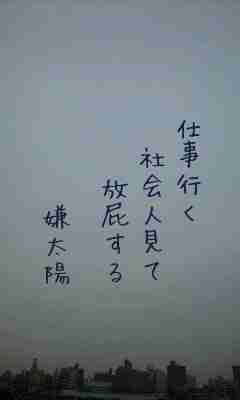 仕事行く
社会人見て
放屁する
嫌太陽